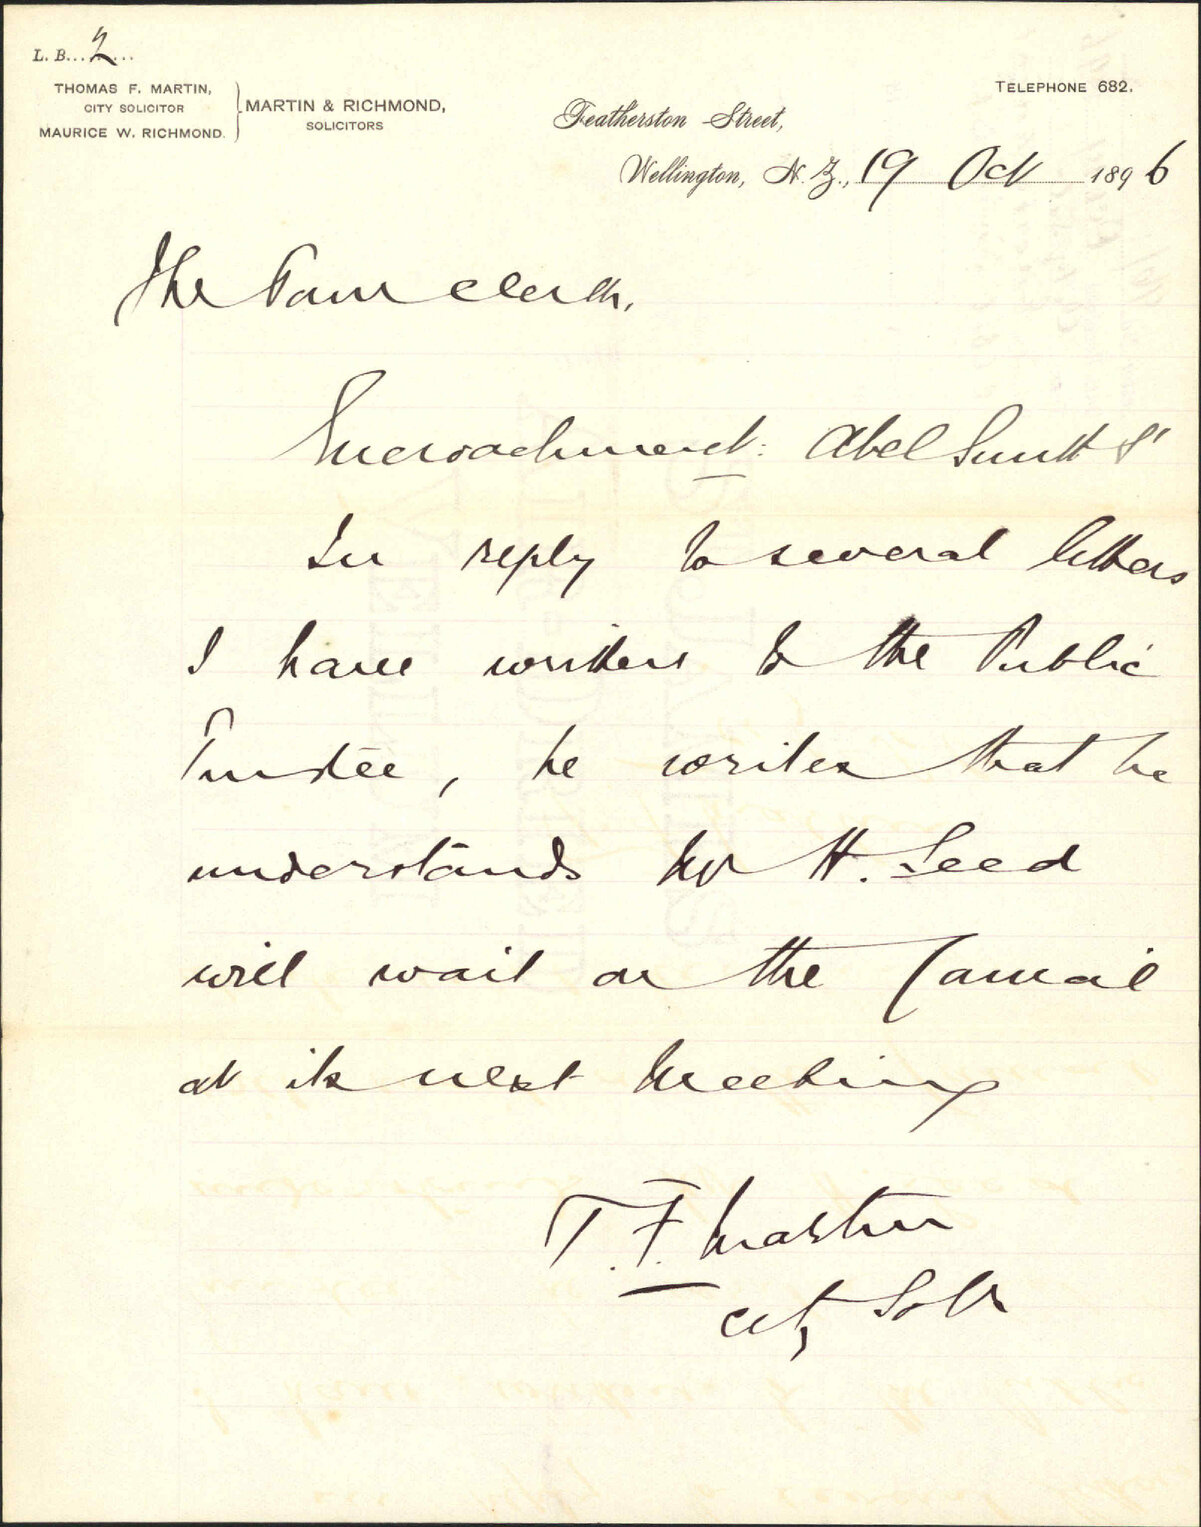 L. B... 2 ...
THOMAS F. MARTIN,
CITY SOLICITOR
MAURICE W. RICHMOND.
MARTIN & RICHMOND,
SOLICITORS
TELEPHONE 682.
Featherston Street,
Wellington, N. Z., 19 Oct 1896
The Town Clerk,
Encroachment: Abel Smith St
In reply to several letters
I have written to the Public
Trustee, he writes that he
understands Mr H. Seed
will wait on the Council
at its next Meeting
T. F. Martin
City Solr